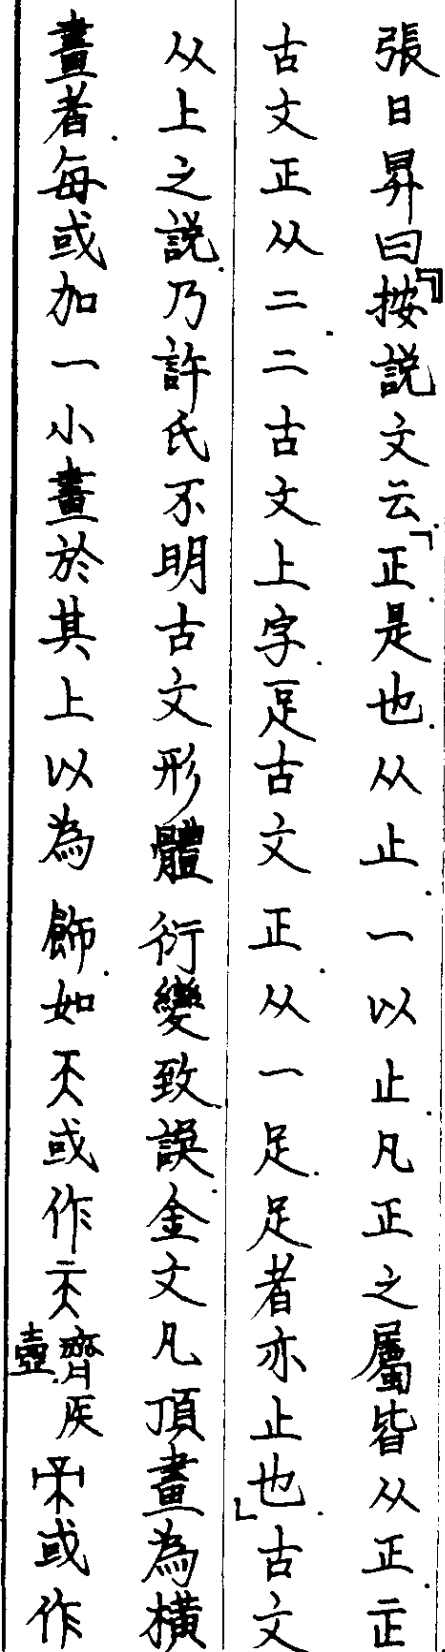 張日昇曰『按說文云「正是也从止一以止凡正之屬皆从正𤴓
古文正从二二古文上字𤴓古文正从一足足者亦止也」古文
从上之說乃許氏不明古文形體衍變致誤金文凡頂畫為橫
畫者每或加一小畫於其上以為飾如天或作齊矦壺或作